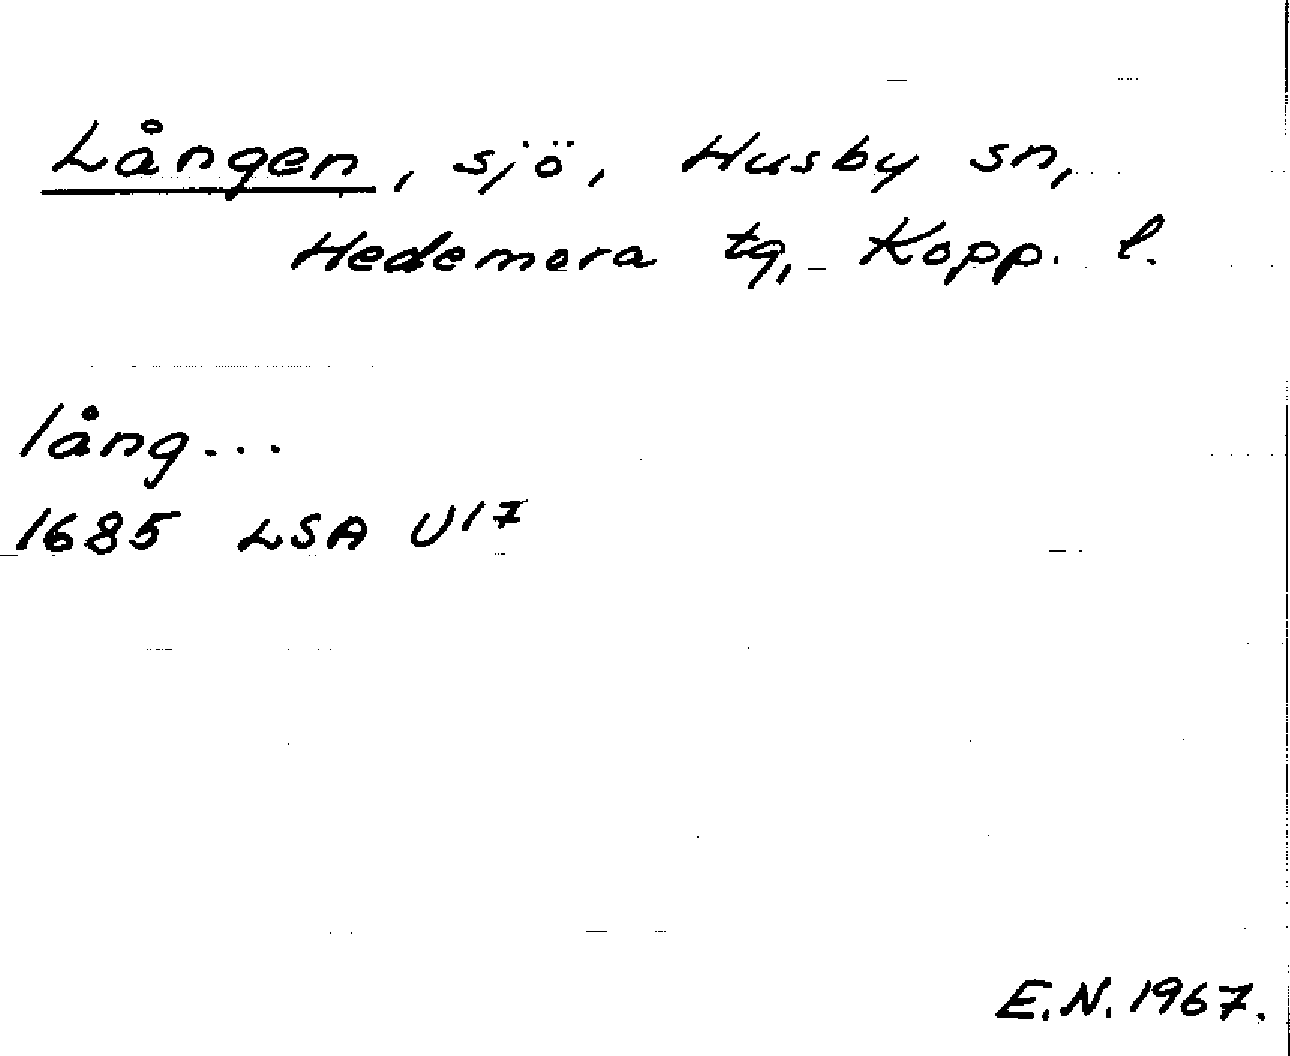 Lången, sjö, Husby sn,
Hedemora tg, Kopp. l.
lång...
1685 LSA U17
E.N. 1967.